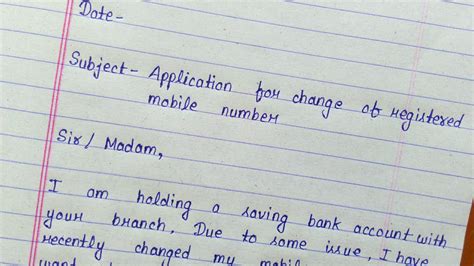 Date-
Subject- Application for change of registered
mobile number
Sir/ Madam,
I am holding a saving bank account with
your branch. Due to some issue, I have
recently changed my mobile
want